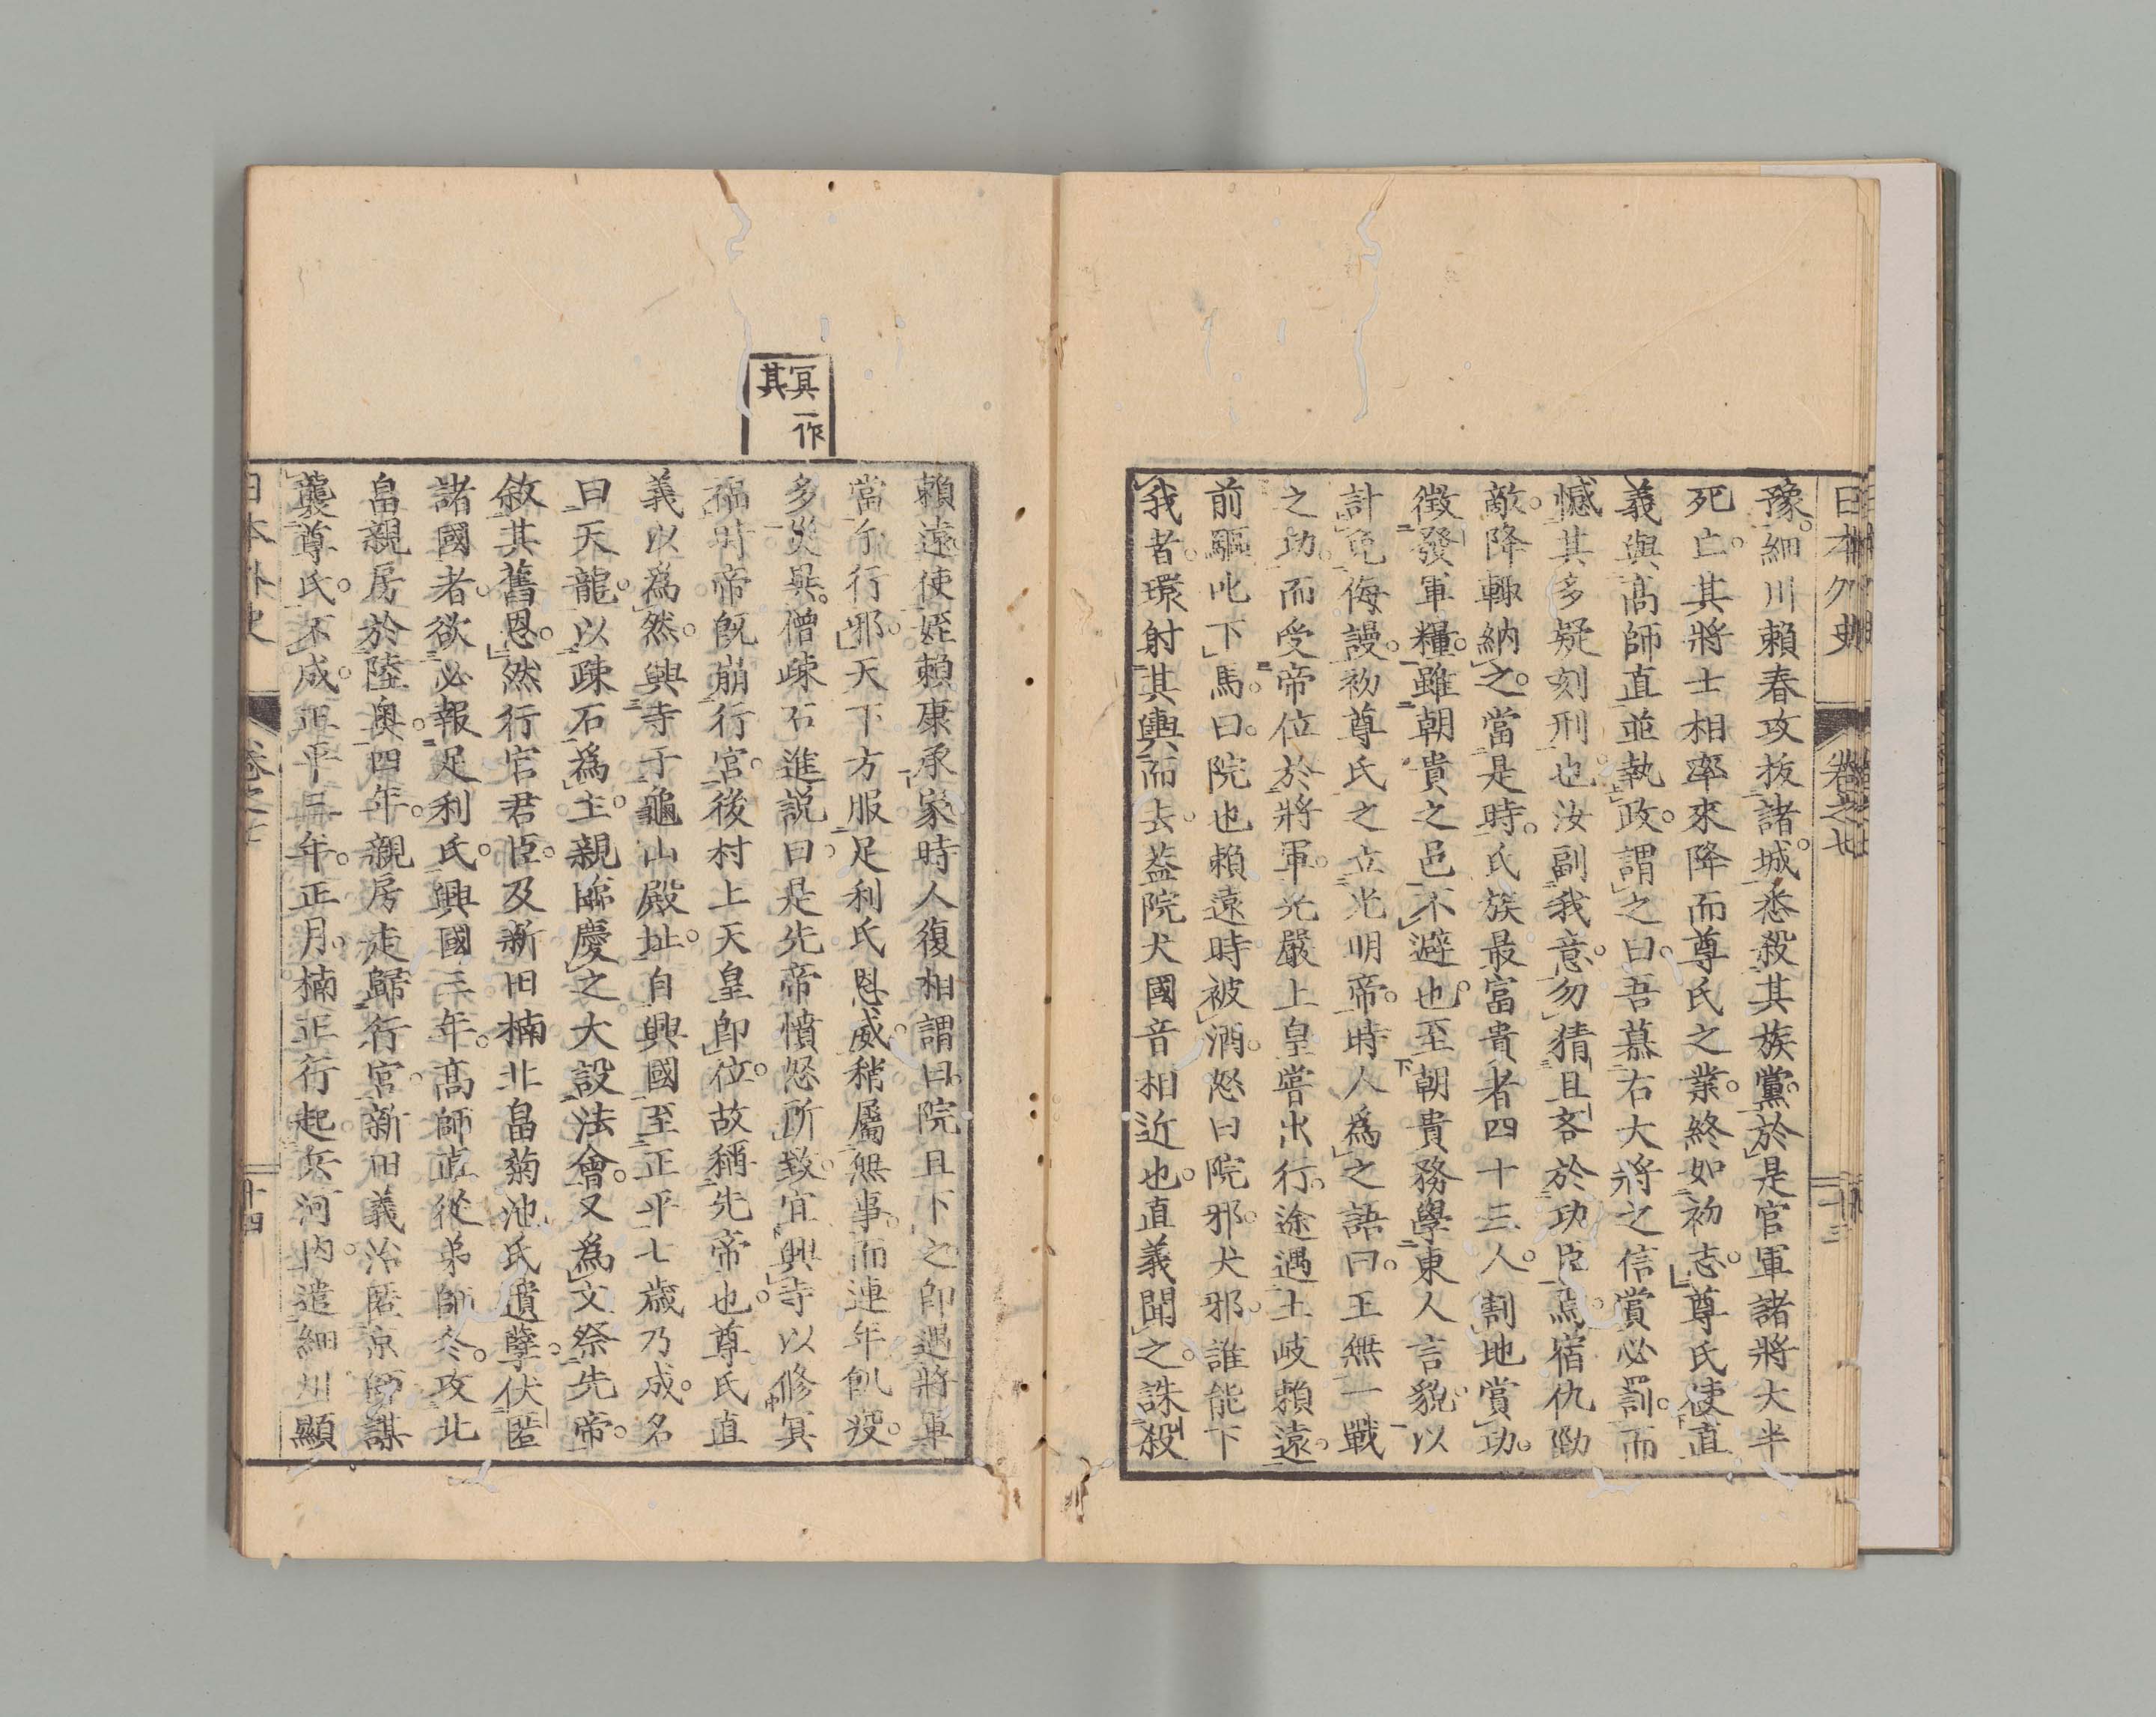 日本外史 卷之七 十三
豫。細川頼春攻拔諸城。悉殺其族黨。於是官軍諸將大半
死亡。其將士相率來降。而尊氏之業。終如初志。尊氏使直
義與高師直並執政。謂之曰。吾慕右大將之信賞必罰。而
憾其多疑刻刑也。汝副我意。勿猜且吝於功臣。焉宿仇勍
敵。降輙納之。當是時。氏族最富貴者四十三人。割地賞功。
徴發軍糧。雖朝貴之邑。不避也。至朝貴務學東人言貌。以
計免侮謾。初尊氏之立光明帝。時人爲之語曰。王無一戰
之功。而受帝位於將軍。光嚴上皇嘗出行。途遇土岐頼遠。
前驅叱下馬。曰。院也。頼遠時被酒。怒曰。院邪。犬邪。誰能下
我者。環射其輿而去。蓋院犬國音相近也。直義聞之。誅殺
頼遠。使姪頼康承家。時人復相謂曰。院且下之。卽遇將軍
當何行邪。天下方服足利氏恩威。稍屬無事。而連年飢疫。
多災異。僧疎石進説曰。是先帝憤怒所致。宜興寺以修冥
福。時帝既崩行宮。後村上天皇卽位。故稱先帝也。尊氏直
義以爲然。興寺于龜山殿址。自興國至正平七歳乃成。名
曰天龍。以疎石爲主。親臨慶之。大設法會。又爲文祭先帝。
敘其舊恩。然行宮君臣。及新田楠北畠菊池氏遺孽。伏匿
諸國者。欲必報足利氏。興國三年。高師直從弟師冬。攻北
畠親房於陸奥。四年。親房走歸行宮。新田義治匿京師。謀
襲尊氏。不成。正平三年。正月。楠正行起兵河内。遣細川顯
冥一作
其
日本外史 卷之七 十四